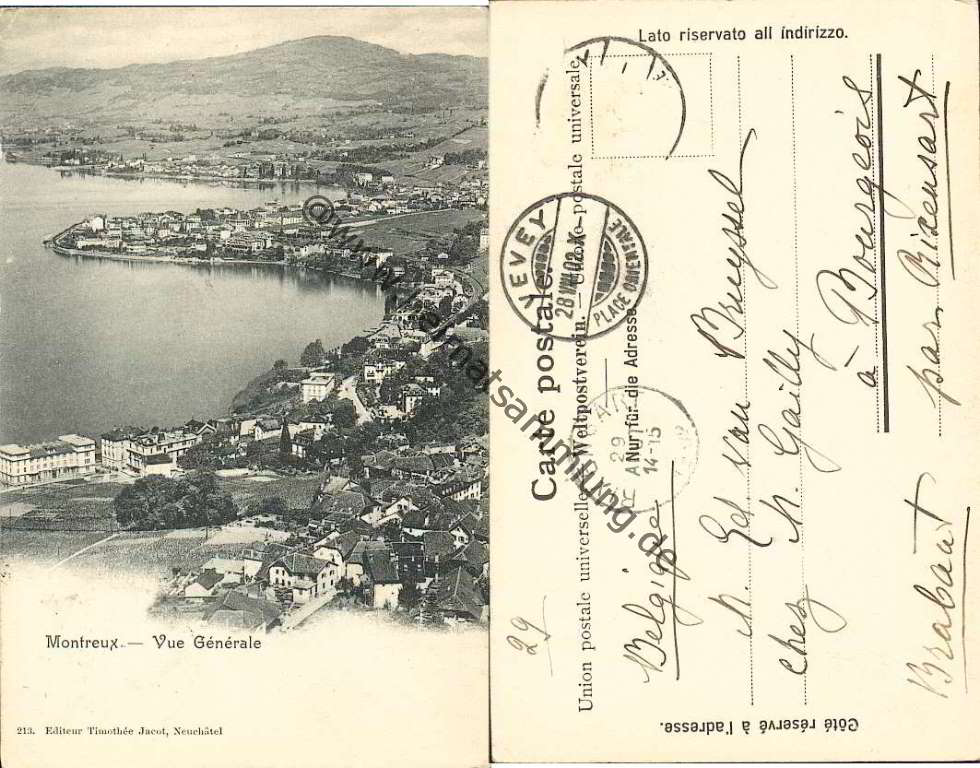 Montreux. — Vue Générale
213. Editeur Timothée Jacot, Neuchâtel
Lato riservato all indirizzo.
Carte postale.
Union postale universelle. — Weltpostverein. — Unione postale universale.
Nur für die Adresse
Côté réservé à l'adresse.
VEVEY
28 VIII 02
PLACE ORIENTALE
29
14-15
29
M. Ed. van Bruyssel
chez M. Gailly
à Bourgeois
par Rixensart
Brabant
Belgique